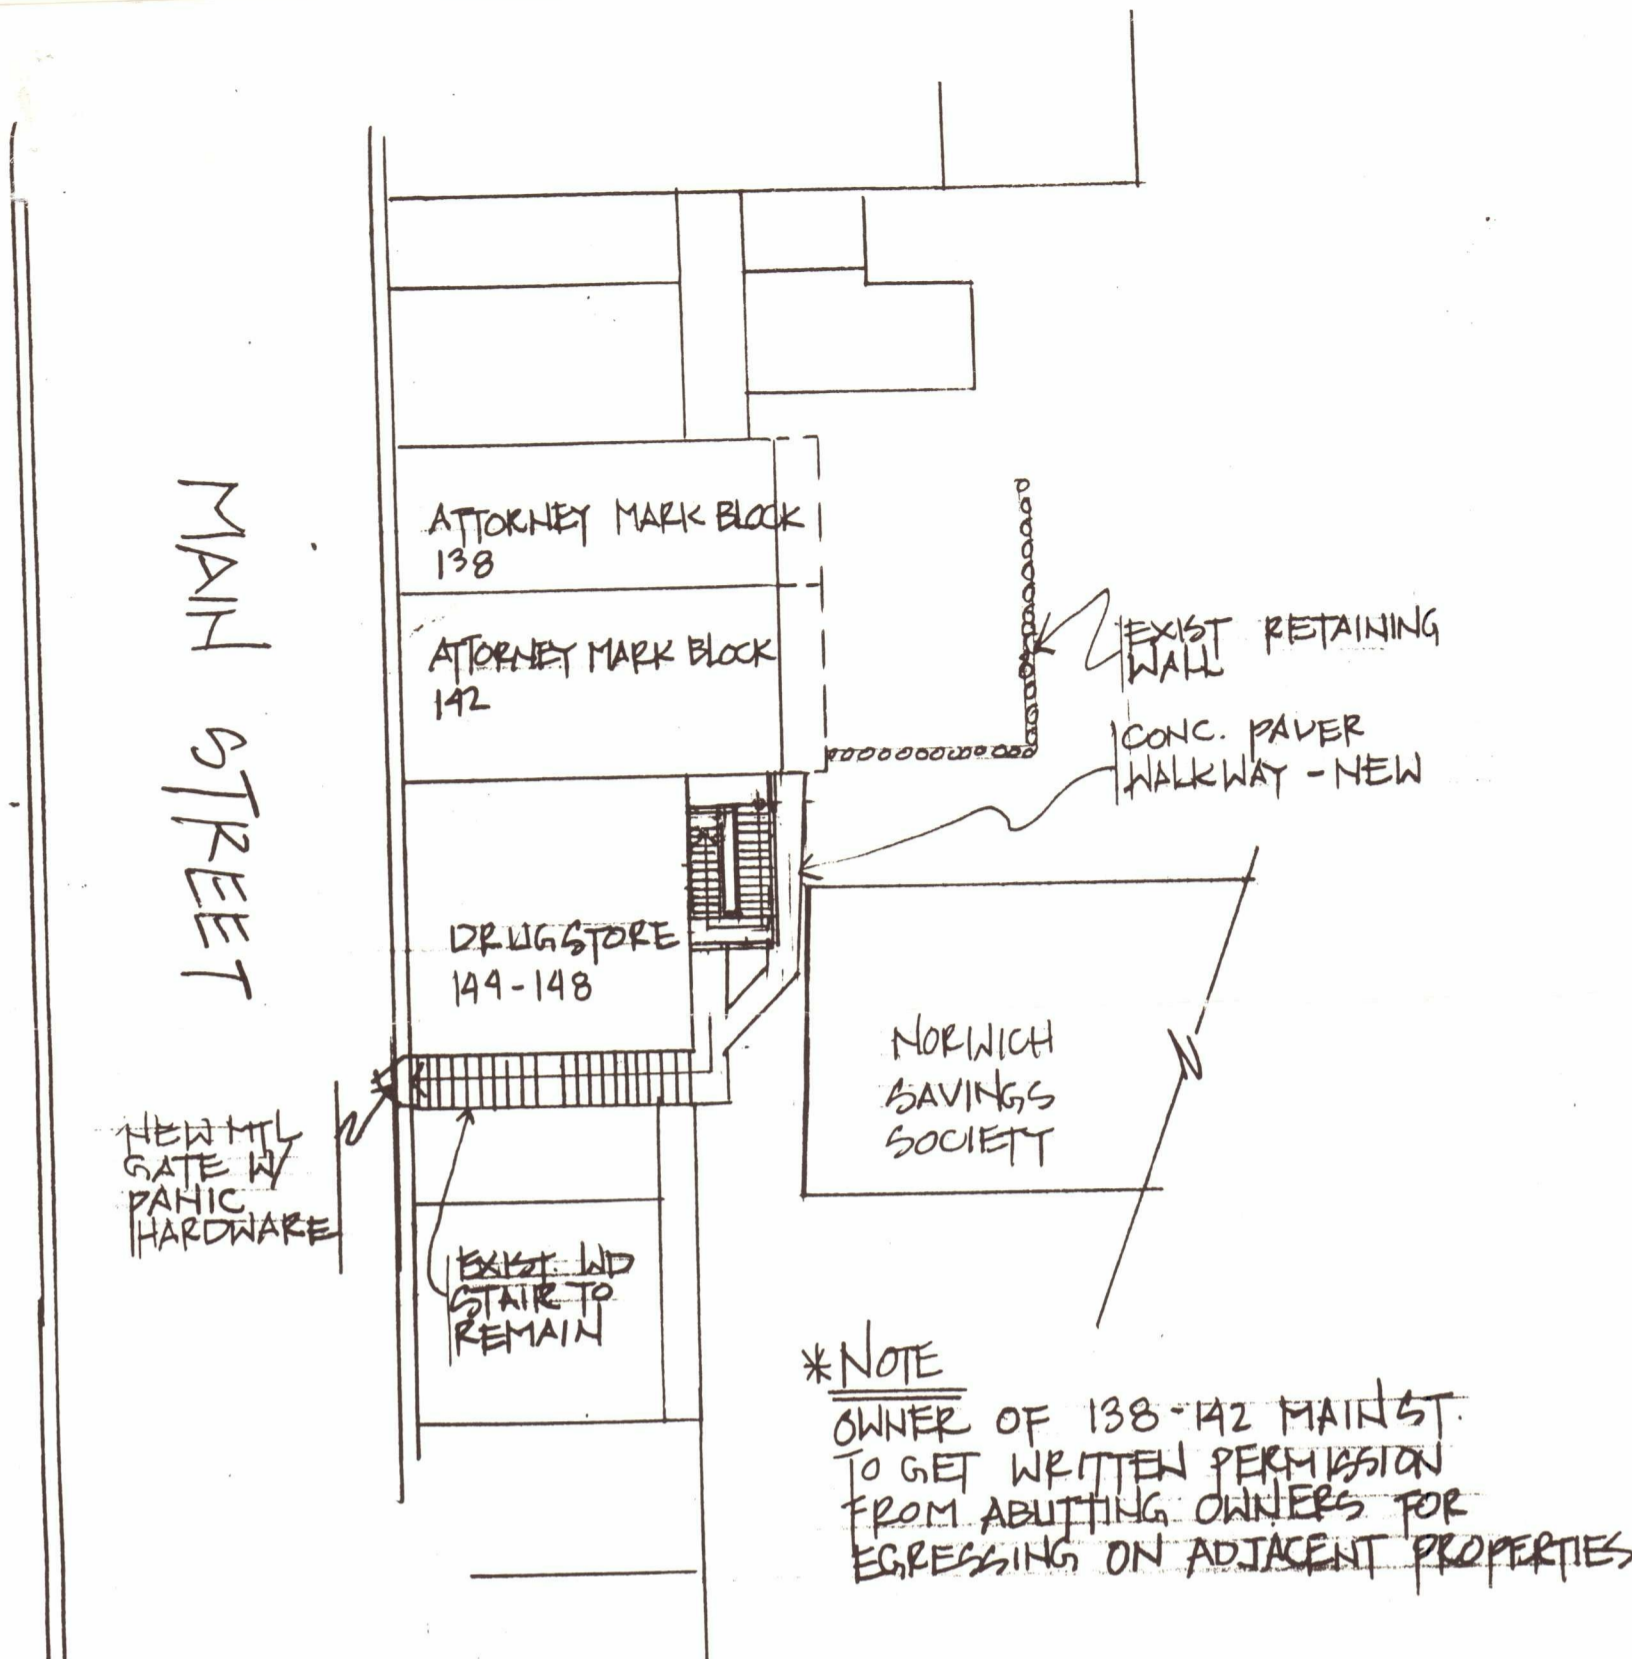 MAIN STREET
ATTORNEY MARK BLOCK
138
ATTORNEY MARK BLOCK
142
EXIST RETAINING
WALL
CONC. PAVER
WALKWAY - NEW
DRUGSTORE
144-148
NORWICH
SAVINGS
SOCIETY
NEW MTL
GATE W/
PANIC
HARDWARE
EXIST. WD
STAIR TO
REMAIN
*NOTE
OWNER OF 138-142 MAIN ST.
TO GET WRITTEN PERMISSION
FROM ABUTTING OWNERS FOR
EGRESSING ON ADJACENT PROPERTIES